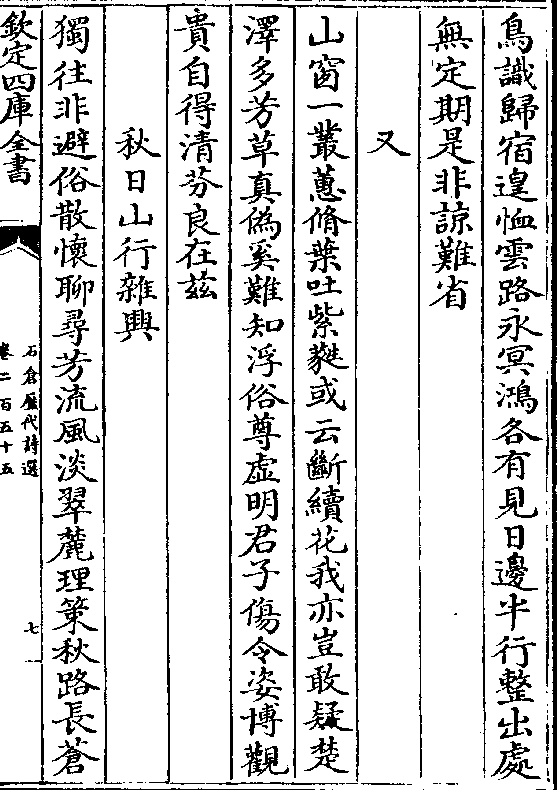 鳥識歸宿遑恤雲路永冥鴻各有見日邊半行整出處
無定期是非諒難省
又
山窗一叢蕙脩葉吐紫蕤或云斷續花我亦豈敢疑楚
澤多芳草真僞奚難知浮俗尊虛明君子傷令姿博觀
貴自得清芬良在兹
秋日山行雜興
獨往非避俗散懷聊尋芳流風淡翠麓理策秋路長蒼
欽定四庫全書
石倉歷代詩選
卷二百五十五
七